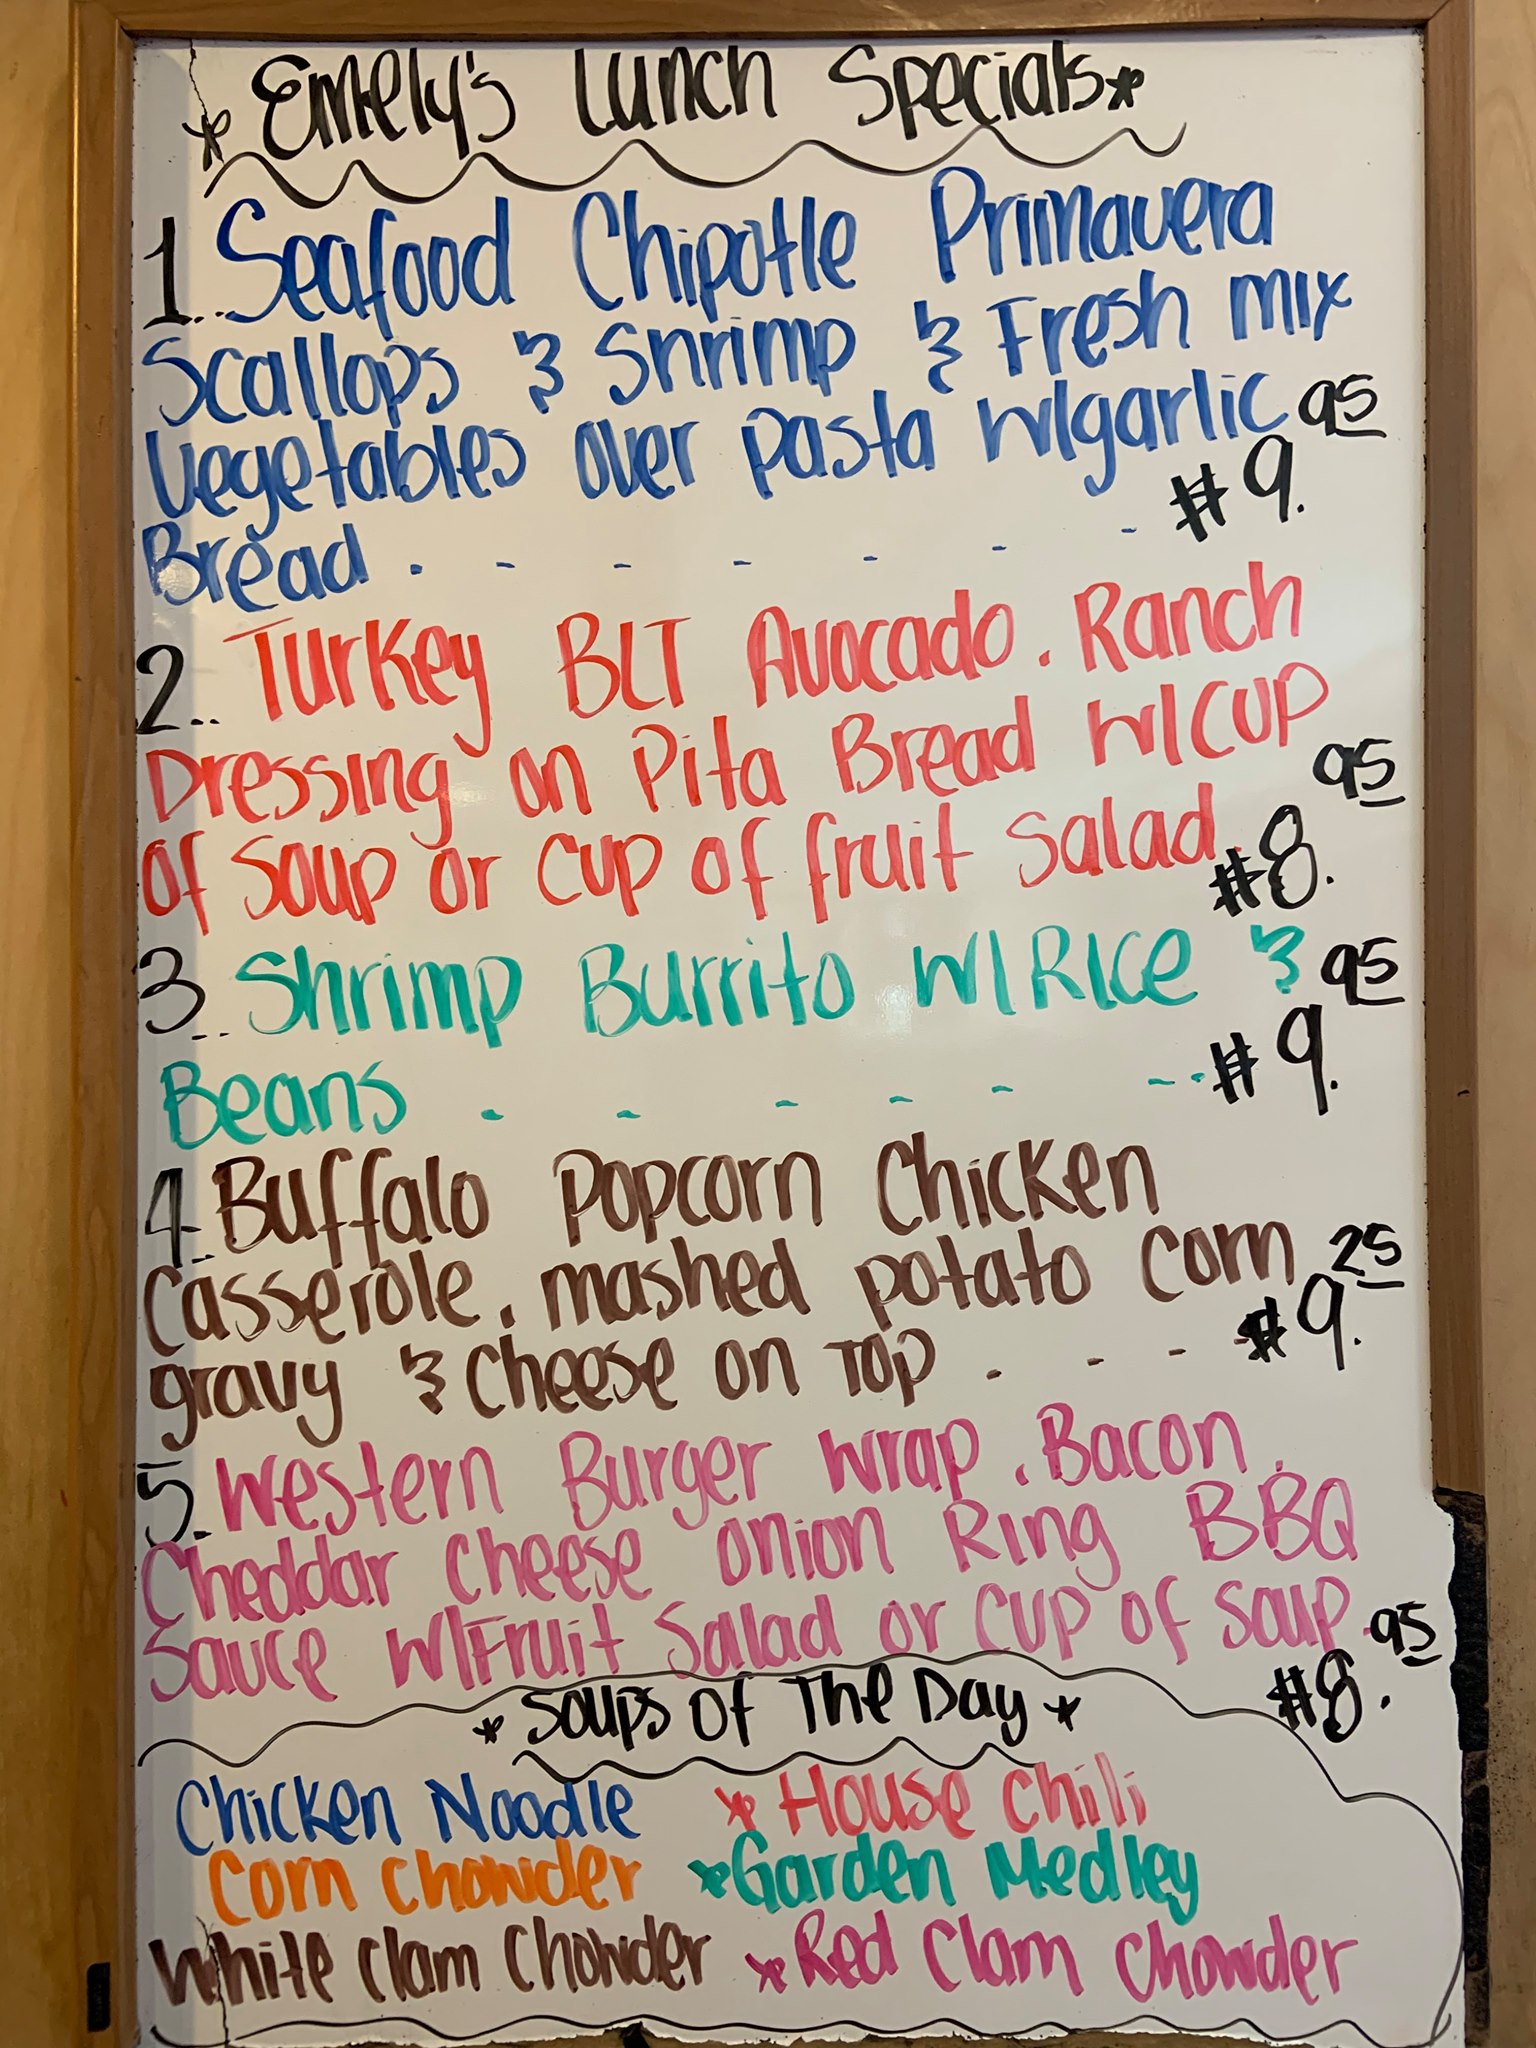 * Emely's Lunch Specials *
1.. Seafood Chipotle Primavera
Scallops & Shrimp & Fresh mix
vegetables over pasta w/garlic
Bread . - - - - - - #9.95
2.. Turkey BLT Avocado. Ranch
Dressing on Pita Bread w/cup
of soup or cup of fruit salad. #8.95
3... Shrimp Burrito w/Rice &
Beans . - - - - - -. #9.95
4.. Buffalo Popcorn Chicken
Casserole. mashed potato corn
gravy & cheese on top . - - #9.25
5.. Western Burger wrap. Bacon.
Cheddar cheese onion Ring BBQ
Sauce w/Fruit Salad or cup of soup. #8.95
* Soups of The Day *
Chicken Noodle * House Chili
Corn Chowder * Garden Medley
White Clam Chowder * Red Clam Chowder